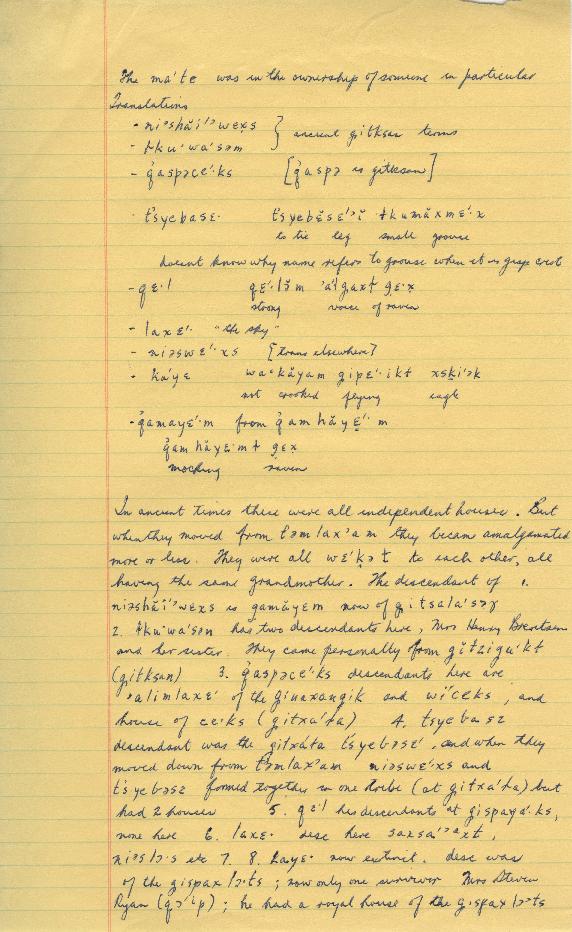 The ma'te was in the ownership of someone in particular
Translations
- niəshăi'ʾwexs } ancient gitksan terms
- ɬku'wa'səm
- q̓aspəcɛ'ks [q̓aspə is gitksan]
t̓syɛbasɛ· t̓syɛbɛ̆sɛ'ʾĭ ɬkumăxmɛ'·x
to tie leg small grouse
doesnt know why name refers to grouse when it is grisp crest
- qɛ·l qɛ'·lə̆m 'a'lgaxɬ gɛ·x
strong voice of raven
- laxɛ'· "the sky"
- niəswɛ'·xs [trans elsewhere]
- k̓áyɛ waˑkăyam gipɛ'·ikt xsk̲i'ək
not crooked flying eagle
- q̓amayɛ'·m from q̓am hăyɛ'·m
q̓am hăyɛ·mɬ gɛx
mocking raven
In ancient times these were all independent houses. But
when they moved from t̓əmlax'am they becam amalgamated
more or less. They were all wɛ'k̲ət to each other, all
having the same grandmother. The descendant of 1.
niəshăi'ʾwɛxs is gamăyɛm now of gitsala'səɣ
2. ɬku'wa'sən has two descendants here, Mrs Henry Brentsen
and her sister. They came personally from gĭtzigu'kt
(gitksan) 3. q̓aspəcɛ'ks descendants here are
'alimlaxɛ' of the ginaxangik and wi'cɛks, and
house of cɛ'ks (gitxa'ɬa) 4. tsyɛbasɛ
descendant was the gitxáɬa t̓syɛbəsɛ', and when they
moved down from t̓əmlax'am niəswɛ'xs and
t̓syɛbəsɛ formed together in one tribe (at gitxa'ɬa) but
had 2 houses 5. qɛ'l his descendants at gispaya'·ks,
none here 6. laxɛ· desc here saxsa'ʾaxt,
niəslɔ·s etc 7. 8. kayɛ· now extinct. desc was
of the gispaxlɔ'ts; now only one survivor Mrs Steven
Ryan (qə'ʾp); he had a royal house of the gispaxlɔ'ts